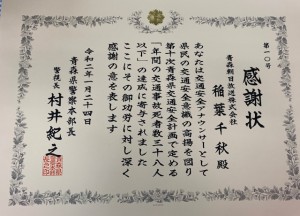 第一〇号
感謝状
青森朝日放送株式会社
稲葉千秋殿
あなたは交通安全アナウンサーとして
県民の交通安全意識の高揚を図り
第十次青森県交通安全計画で定める
「年間の交通事故死者数三十八人
以下」の達成に寄与されました
ここにその御功労に対し深く
感謝の意を表します
令和二年一月二十四日
青森県警察本部長
警視長 村井紀之